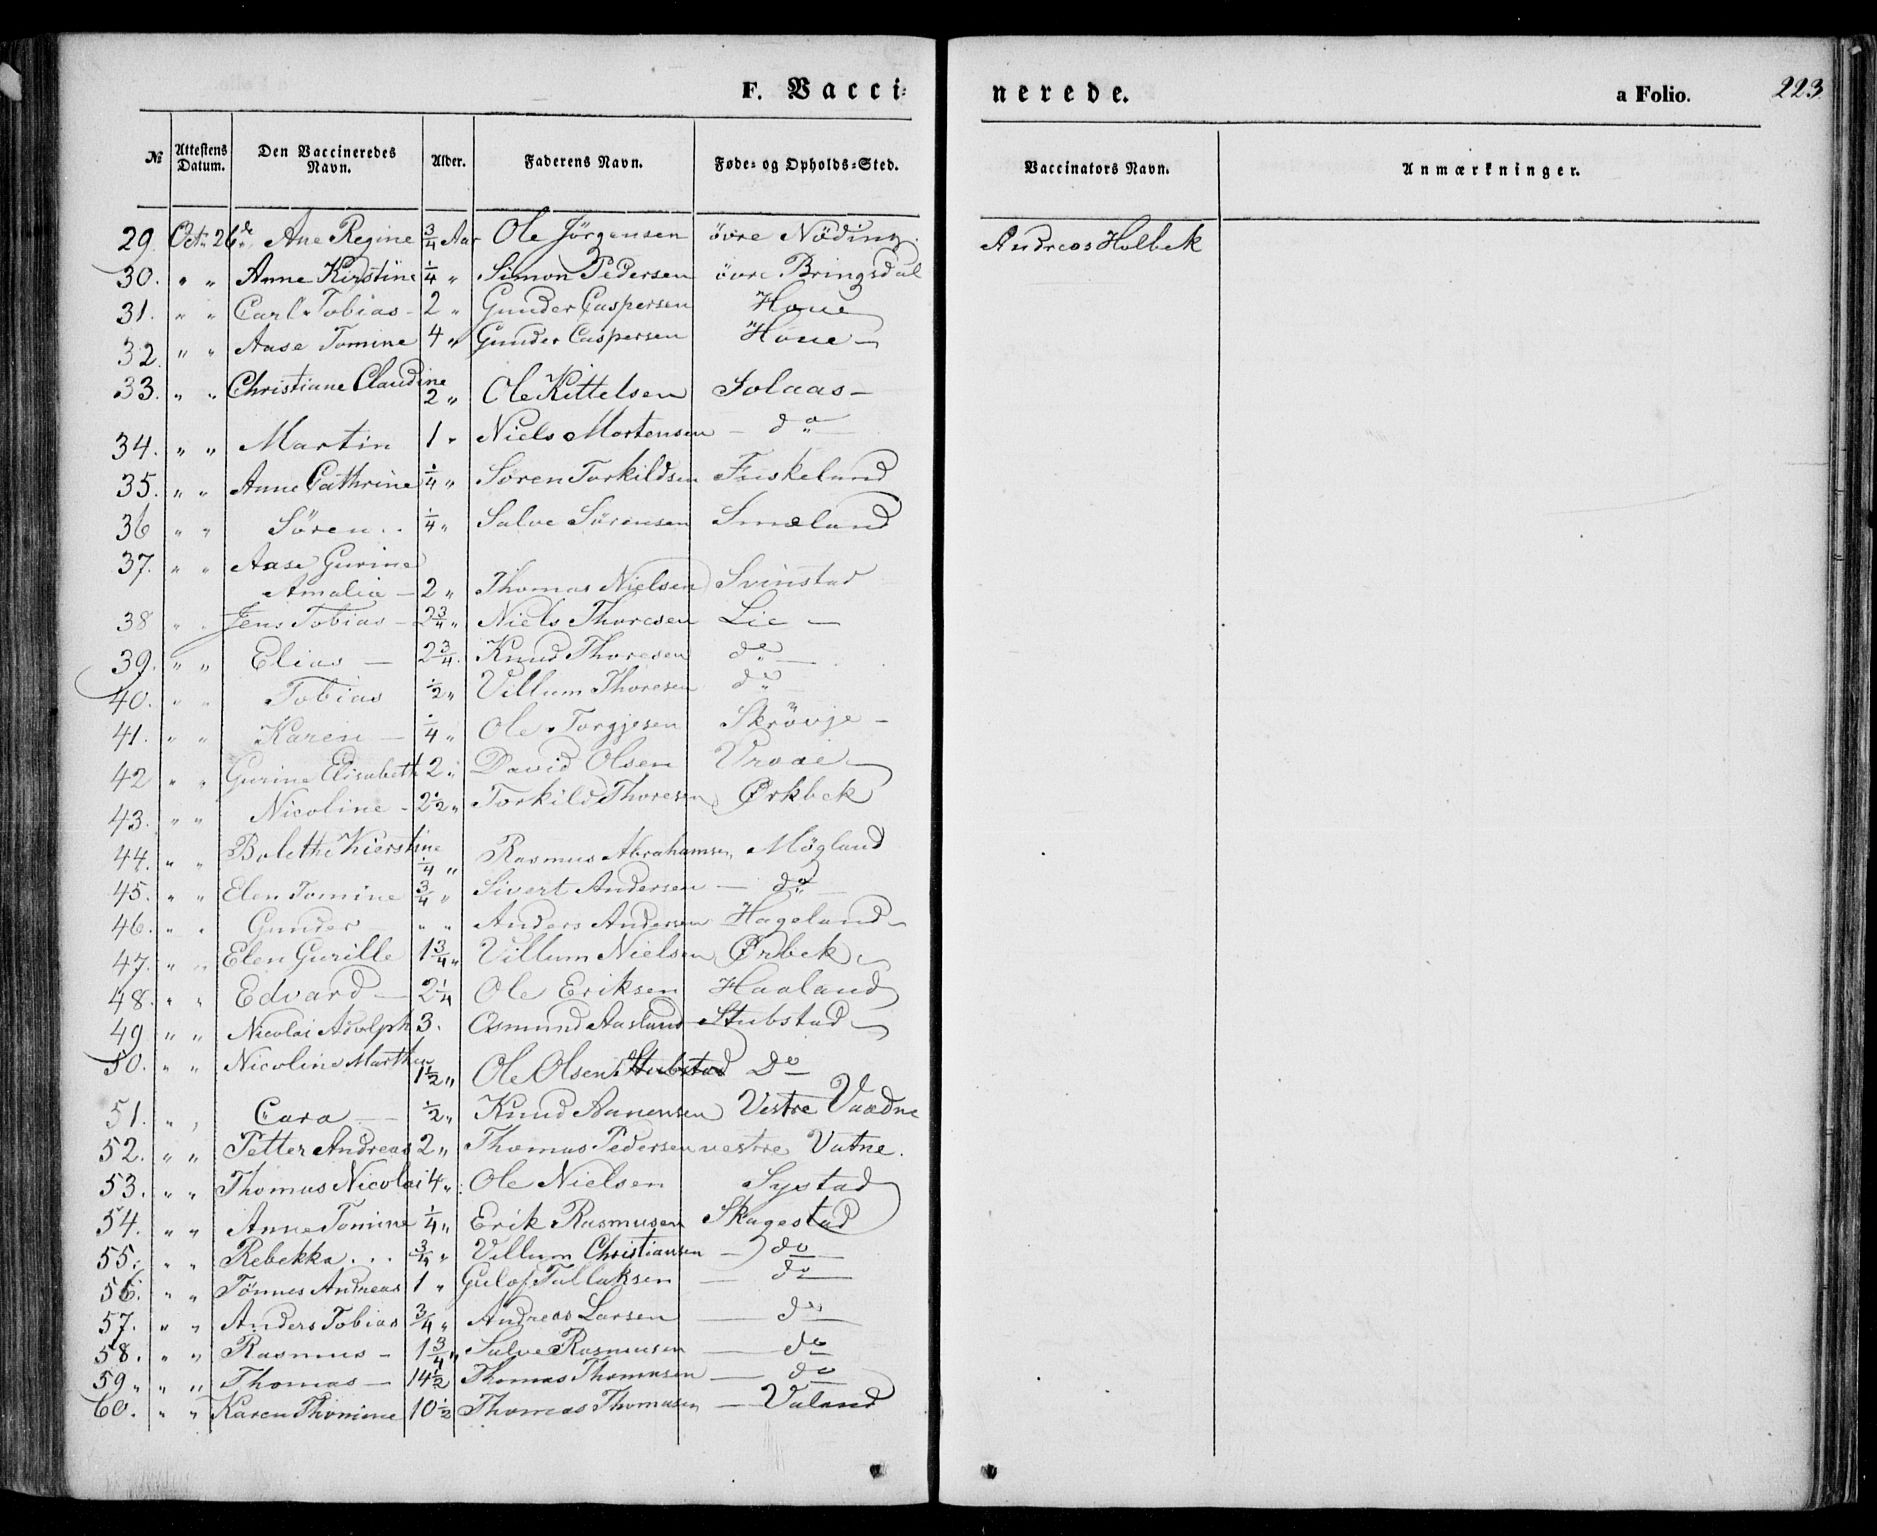 F. Vacci-
nerede.
a Folio.
223
№ Attestens Datum. Den Vaccineredes Navn. Alder. Faderens Navn. Føde- og Opholds-Sted. Vaccinators Navn. Anmærkninger.
29. Octr 26de Ane Regine 3/4 Aar Ole Jörgensen övre Nöding. Andreas Holbek
30. " " Anne Kirstine 1/4 " Simon Pedersen övre Bringsdal
31. " " Carl Tobias - 2 " Gunder Caspersen Houe
32. " " Aase Tomine 4 " Gunder Caspersen Houe -
33. " " Christiane Claudine 2 " Ole Kittelsen Solaas -
34. " " Martin 1 " Niels Mortensen - do -
35. " " Anne Cathrine 1/4 " Sören Torkildsen Fuskeland
36 " " Sören .. 1/4 " Salve Sörensen Smæland
37. " " Aase Gurine
Amalia - 2 " Thomas Nielsen Svinstad
38 " " Jens Tobias - 2 3/4 " Niels Thoresen Lie -
39. " " Elias - 2 3/4 . Knud Thoresen do -
40. " " Tobias 1/2 " Villum Thoresen do -
41. " " Karen - 1/4 " Ole Torgjesen Skrövje -
42 " " Gurine Elisabeth 2 " David Olsen
43. " " Nicoline - 2 1/2 " Torkild Thoresen Ørkbek
44. " " Bolethe Kierstine 1/4 " Rasmus Abrahamsen Møgland
45. " " Elen Tomine 3/4 " Sivert Andersen - do -
46. " " Gunder " " Anders Andersen Hageland -
47. " " Elen Gurille 1 3/4 " Villum Nielsen Ørbek
48. " " Edvard - 2 1/4 Ole Eriksen Haaland
49 " " Nicolai Adolph 3. Osmund Aaslund Stubstad -
50. " " Nicoline Marthea 1 1/2 " Ole Olsen Stubstad Do
51. " " Cara - 1/2 " Knud Aanensen Vestre Vaadne
52. " " Petter Andreas 2 " Thomas Pedersen vestre Vatne.
53. " " Thomas Nicolai 4 " Ole Nielsen Systad
54. " " Anne Tomine 1/4 " Erik Rasmusen Skagestad
55. " " Rebekka ... 3/4 " Villum Christiansen - do -
56. " " Tönnes Andreas 1 " Gulof Tallaksen - do -
57. " " Anders Tobias 3/4 " Andreas Larsen - do -
58. " " Rasmus - 1 3/4 " Salve Rasmusen - do
59 " " " Thomas - 14 1/2 Thomas Thomasen - do
60. " " Karen Thomine 10 1/2 Thomas Thomasen - Valand